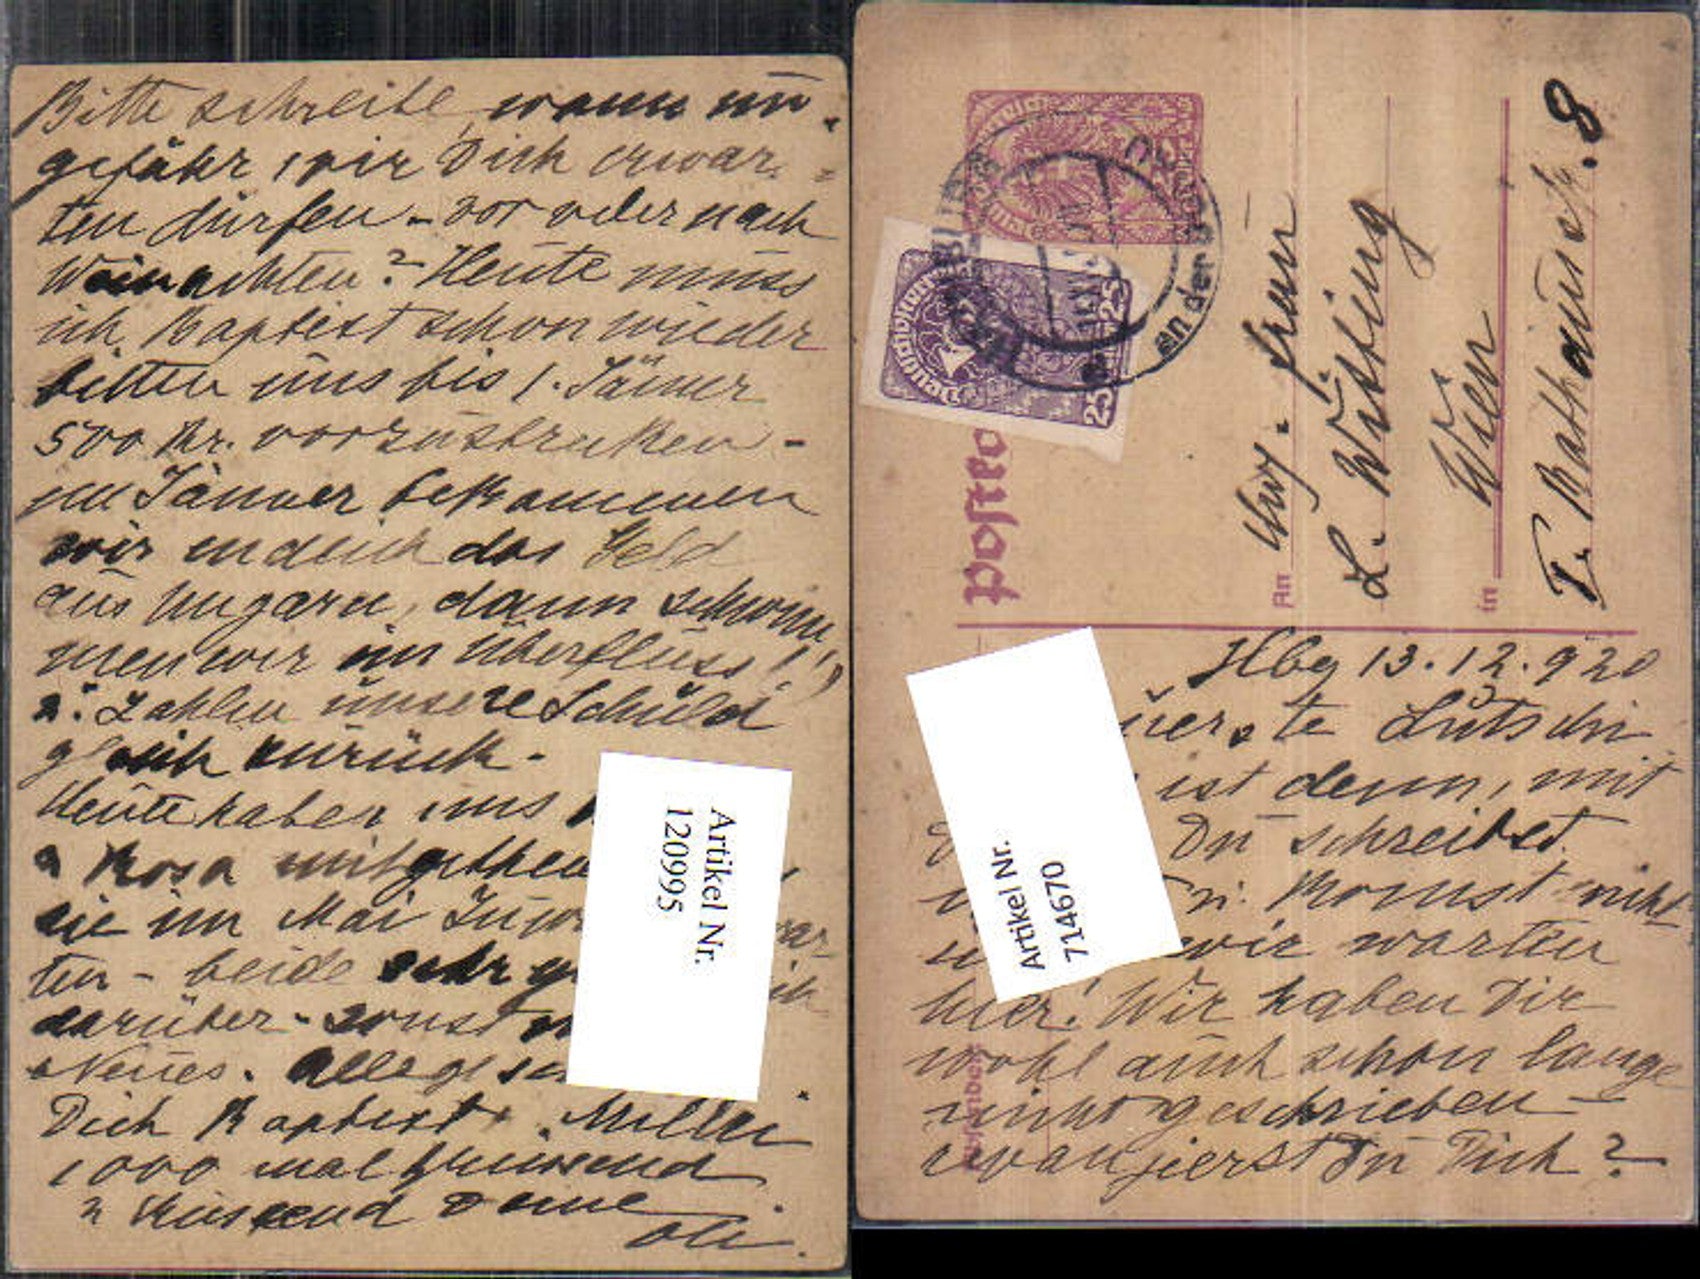 Bitte schreibe, wann un-
gefähr wir Dich erwar=
ten dürfen - vor oder nach
Weinachten? Heute muss
ich Baptist schon wieder
bitten uns bis 1. Jäner
500 Kr. vorzustrecken -
im Jänner bekommen
wir endlich das Geld
aus Ungarn, dann schwim
men wir im Überfluss!!
u. zahlen unsere Schuld
gleich zurück.
Heute haben uns
Rosa mitgetheil
sie im Mai Zuw
ten - beide sehr
darüber - sonst
Neues. Alle
Dich Baptist
1000 mal grüssend
u küssend Deine
Oli.
Artikel Nr.
1209995
Postka
25
25
an der
An
L. Witting
in Wien
I. Rathausstr. 8
Hbg 13.12.920
ist denn, mit
Du schreibst.
Komst nicht
wir warten
hier! Wir haben Dir
wohl auch schon lange
nicht geschrieben -
revanjierst Du Dich?
Artikel Nr.
714670